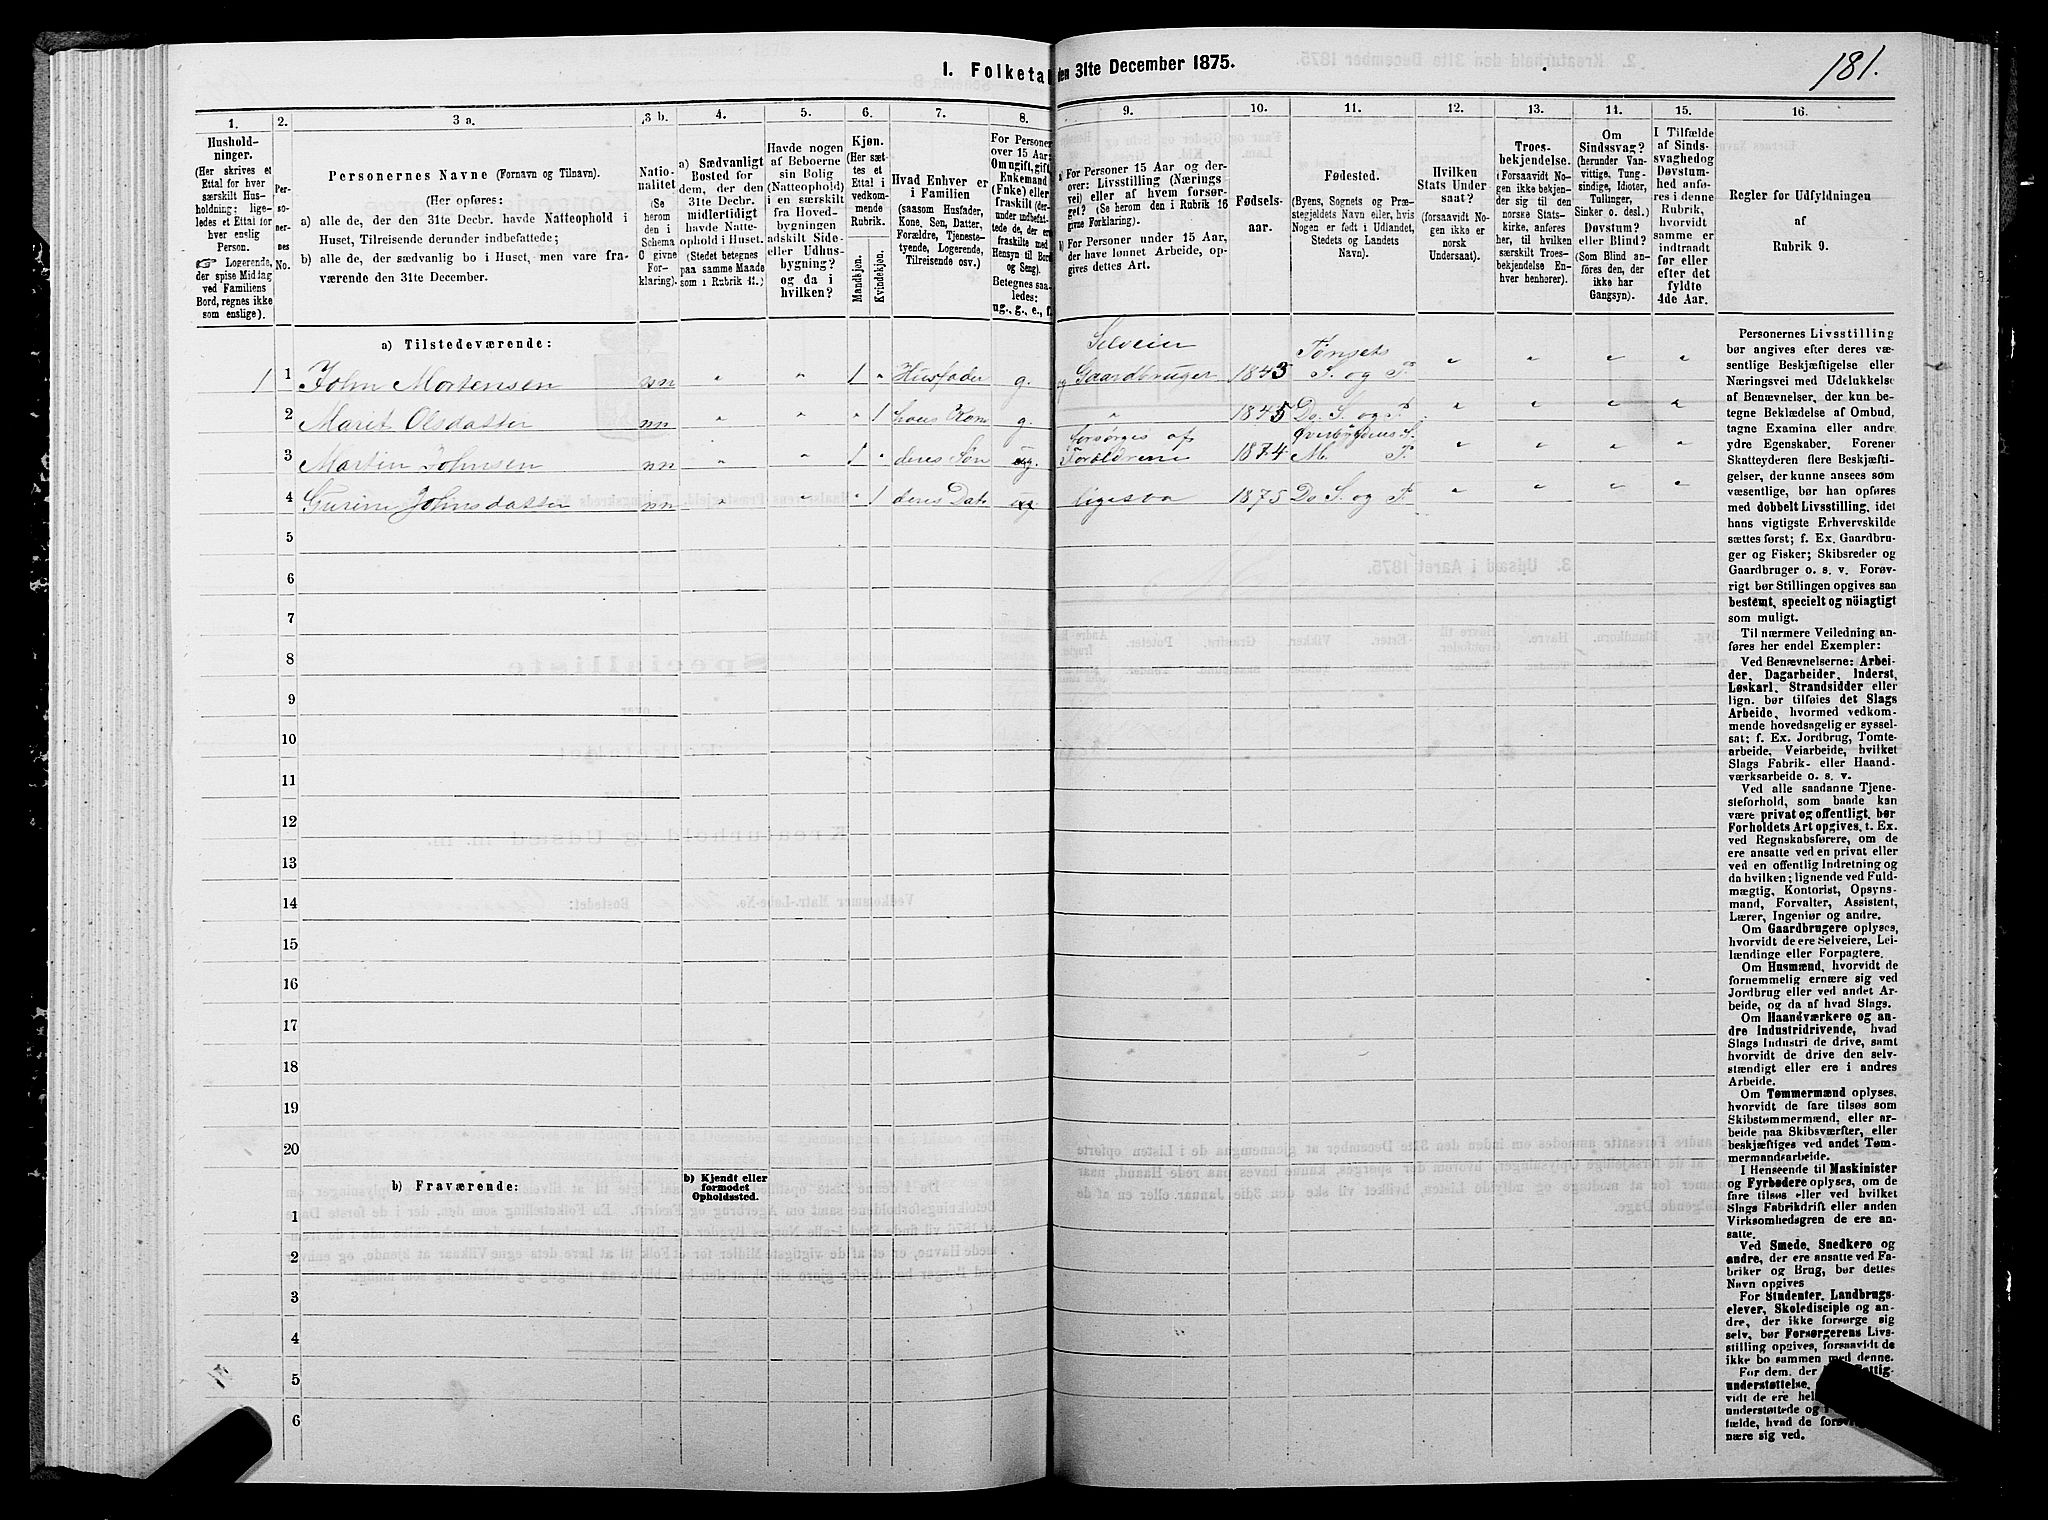 I. Folketa den 31te December 1875.
181.
1.
Hushold-
ninger.
(Her skrives et
Ettal for hver
særskilt Hus-
holdning; lige-
ledes et Ettal for
hver enslig
Person.
☞ Logerende,
der spise Middag
ved Familiens
Bord, regnes ikke
som enslige).
2.
Per-
so-
ner-
nes
No.
3 a.
Personernes Navne (Fornavn og Tilnavn).
(Her opføres:
a) alle de, der den 31te Decbr. havde Natteophold i
Huset, Tilreisende derunder indbefattede;
b) alle de, der sædvanlig bo i Huset, men vare fra-
værende den 31te December.
3 b.
Natio-
nalitet
(Se
herom
den i
Schema
C givne
For-
klaring).
4.
a) Sædvanligt
Bosted for
dem, der den
31te Decbr.
midlertidigt
havde Natte-
ophold i Huset.
(Stedet betegnes
paa samme Maade
som i Rubrik 11.)
5.
Havde nogen
af Beboerne
sin Bolig
(Natteophold)
i en særskilt
fra Hoved-
bygningen
adskilt Side-
eller Udhus-
bygning?
og da i
hvilken?
6.
Kjøn.
(Her sæt-
tes et
Ettal i
vedkom-
mende
Rubrik.
Mandkjøn.
Kvindekjøn.
7.
Hvad Enhver er
i Familien
(saasom Husfader,
Kone, Søn, Datter,
Forældre, Tjeneste-
tyende, Logerende,
Tilreisende osv.)
8.
For Personer
over 15 Aar:
Om ugift, gift,
Enkemand
(Enke) eller
fraskilt (der-
under indbefat-
tede de, der ere
fraskilte med
Hensyn til Bord
og Seng).
Betegnes saa-
ledes:
ug., g., e., f.
9.
a) For Personer 15 Aar og der-
over: Livsstilling (Nærings-
vei) eller af hvem forsør-
get? (Se herom den i Rubrik 16
givne Forklaring).
b) For Personer under 15 Aar,
der have lønnet Arbeide, op-
gives dettes Art.
10.
Fødsels-
aar.
11.
Fødested.
(Byens, Sognets og Præ-
stegjeldets Navn eller, hvis
Nogen er født i Udlandet,
Stedets og Landets
Navn).
12.
Hvilken
Stats Under-
saat?
(forsaavidt No-
gen ikke er
norsk
Undersaat).
13.
Troes-
bekjendelse.
(Forsaavidt No-
gen ikke bekjen-
der sig til den
norske Stats-
kirke, anføres
her, til hvilken
særskilt Troes-
bekjendelse En-
hver henhører).
14.
Om
Sindssvag?
(herunder Van-
vittige, Tung-
sindige, Idioter,
Tullinger,
Sinker o. desl.)
Døvstum?
eller Blind?
(Som Blind an-
føres den, der
ikke har
Gangsyn).
15.
I Tilfælde
af Sinds-
svaghed og
Døvstum-
hed anfø-
res i denne
Rubrik,
hvorvidt
samme er
indtraadt
før eller
efter det
fyldte
4de Aar.
16.
Regler for Udfyldningen
af
Rubrik 9.
a) Tilstedeværende:
1 1 John Mortensen nn " " 1 " Husfader g. Selveier og Gaardbruger 1843 Tønsets S. og P. " " " "
2 Marit Olsdatter nn " " " 1 hans Kone g. " 1845 Do. S. og P " " " "
3 Martin Johnsen nn " " 1 " deres Søn ug. Forsørges af Forældrene 1874 Øverbygdens S. M. P. " " " "
4 Gurine Johnsdatter nn " " " 1 deres Dat. ug. ligesaa 1875 Do S. og P " " " "
5
6
7
8
9
10
11
12
13
14
15
16
17
18
19
20
b) Fraværende:
b) Kjendt eller
formodet
Opholdssted.
1
2
3
4
5
6
Personernes Livsstilling
bør angives efter deres væ-
sentlige Beskjæftigelse eller
Næringsvei med Udelukkelse
af Benævnelser, der kun be-
tegne Beklædelse af Ombud,
tagne Examina eller andre
ydre Egenskaber. Forener
Skatteyderen flere Beskjæfti-
gelser, der kunne ansees som
væsentlige, bør han opføres
med dobbelt Livsstilling, idet
hans vigtigste Erhvervskilde
sættes først; f. Ex. Gaardbru-
ger og Fisker; Skibsreder og
Gaardbruger o. s. v. Forøv-
rigt bør Stillingen opgives saa
bestemt, specielt og nöiagtigt
som muligt.
Til nærmere Veiledning an-
føres her endel Exempler:
Ved Benævnelserne: Arbei-
der, Dagarbeider, Inderst,
Løskarl, Strandsidder eller
lign. bør tilføies det Slags
Arbeide, hvormed vedkom-
mende hovedsagelig er syssel-
sat; f. Ex. Jordbrug, Tomte-
arbeide, Veiarbeide, hvilket
Slags Fabrik- eller Haand-
værksarbeide o. s. v.
Ved alle saadanne Tjene-
steforhold, som baade kan
være privat og offentligt, bør
Forholdets Art opgives, t. Ex.
ved Regnskabsførere, om de
ere ansatte ved en privat eller
ved en offentlig Indretning og
da hvilken; lignende ved Fuld-
mægtig, Kontorist, Opsyns-
mand, Forvalter, Assistent,
Lærer, Ingeniør og andre.
Om Gaardbrugere oplyses,
hvorvidt de ere Selveiere, Lei-
lændinge eller Forpagtere.
Om Husmænd, hvorvidt de
fornemmelig ernære sig ved
Jordbrug eller ved andet Ar-
beide, og da af hvad Slags.
Om Haandværkere og an-
dre Industridrivende, hvad
Slags Industri de drive, samt
hvorvidt de drive den selv-
stændigt eller ere i andres
Arbeide.
Om Tømmermænd oplyses,
hvorvidt de fare tilsøs som
Skibstømmermænd, eller ar-
beide paa Skibsværfter, eller
beskjæftiges ved andet Tøm-
mermandsarbeide.
I Henseende til Maskinister
og Fyrbødere oplyses, om de
fare tilsøs eller ved hvilket
Slags Fabrikdrift eller anden
Virksomhedsgren de ere an-
satte.
Ved Smede, Snedkere og
andre, der ere ansatte ved Fa-
briker og Brug, bør dettes
Navn opgives
For Studenter, Landbrugs-
elever, Skoledisciple og an-
dre, der ikke forsørge sig
selv, bør Forsørgerens Livs-
stilling opgives, forsaavidt de
ikke bo sammen med denne.
For dem, der
understøttelse,
vidt de ere hel
understøttede og
fælde, hvad de
nære sig ved.